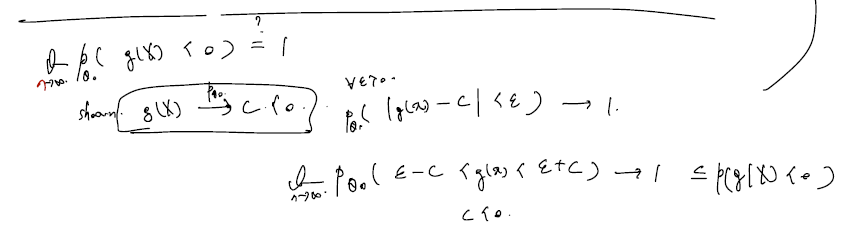 lim n→∞. P_θ₀( g(X) < 0 ) =? 1
shown. g(X) →^{P_θ₀} C < 0. ∀ε>0. P_θ₀( |g(x) - C| < ε ) → 1.
lim n→∞. P_θ₀( ε - C < g(x) < ε + C ) → 1 ≤ P(g(X) < 0)
C < 0.